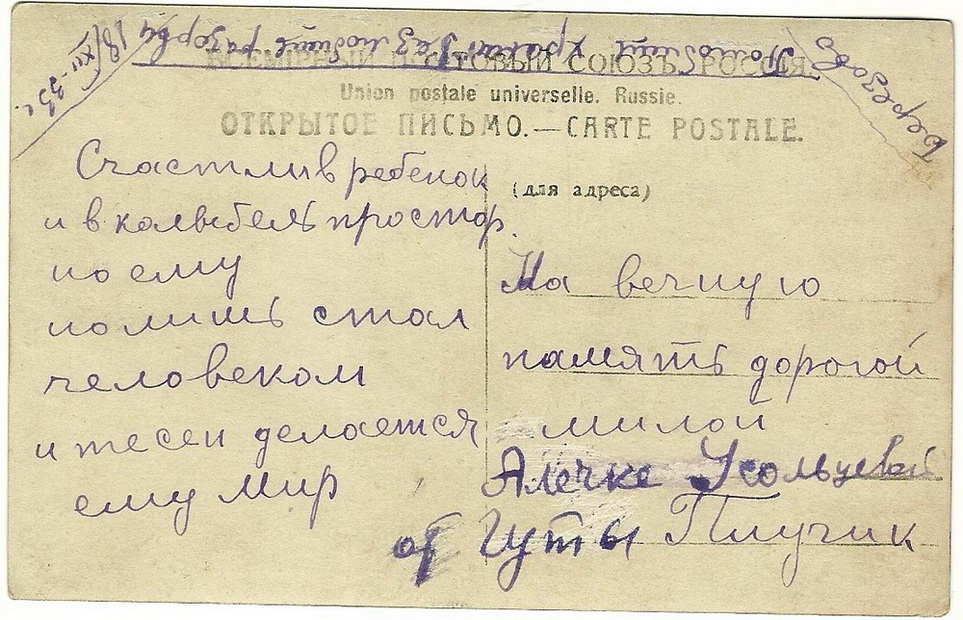 18/XII-33 г.
Полюбишь храни Разлюбишь разорви
Березов
ВСЕМІРНЫЙ ПОЧТОВЫЙ СОЮЗЪ. РОССІЯ.
Union postale universelle. Russie.
ОТКРЫТОЕ ПИСЬМО.—CARTE POSTALE.
Счастлив ребенок
и в колыбель простор.
но ему
но лишь стал
человеком
и тесен делается
ему мир
(для адреса)
На вечную
память дорогой
милой
Алечке Усольцевой
от Гуты Плучик